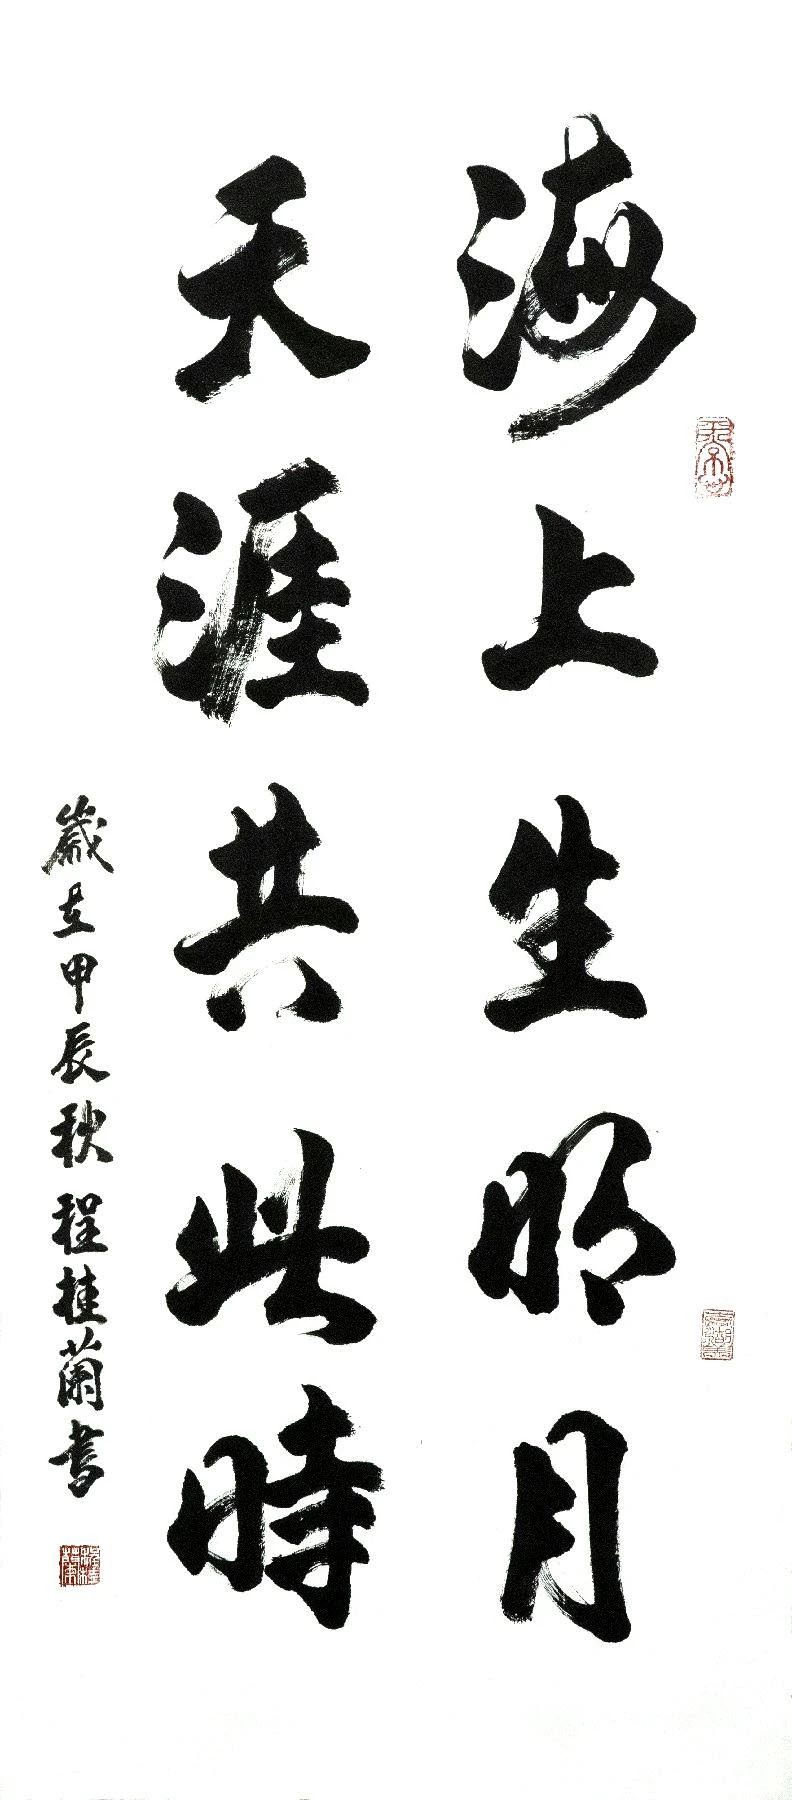 海上生明月
天涯共此時
歲在甲辰秋程桂蘭書
程桂蘭